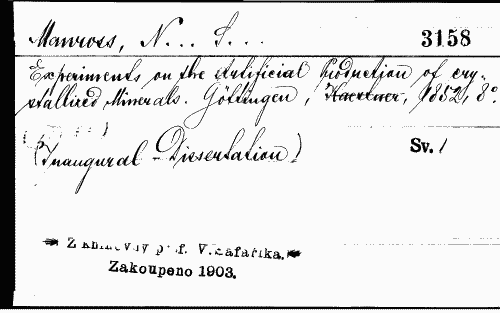 Manross, N... S... 3158
Experiments on the Artificial Production of cry-
stallized Minerals. Göttingen, Huetner, 1852, 8°.
(Inaugural-Dissertation) Sv. 1
Z knihovny prof. V. Šafaříka.
Zakoupeno 1903.